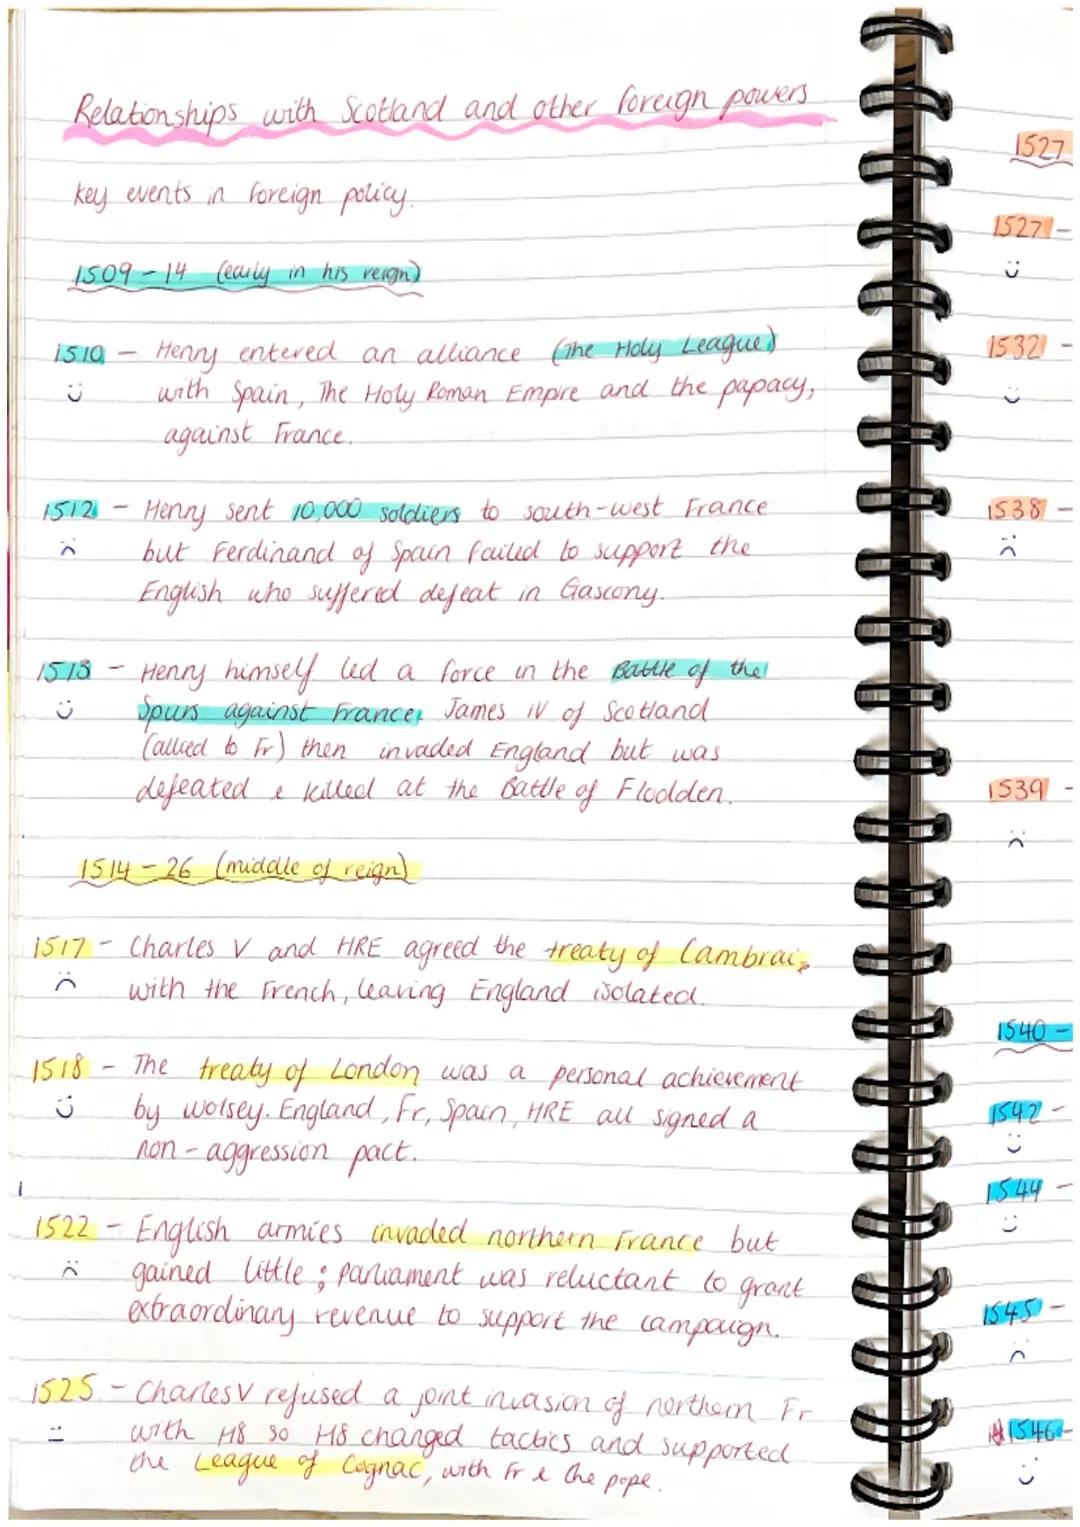 Relationships with Scotland and other foreign powers
key events in foreign policy.
1509-14 (early in his reign)
1510 - Henry entered an alliance (The Holy League)
:) with Spain, The Holy Roman Empire and the papacy,
against France.
1512 - Henry sent 10,000 soldiers to south-west France
:( but Ferdinand of Spain failed to support the
English who suffered defeat in Gascony.
1513 - Henry himself led a force in the Battle of the
:) Spurs against France. James IV of Scotland
(allied to Fr) then invaded England but was
defeated & killed at the Battle of Flodden.
1514-26 (middle of reign)
1517 - Charles V and HRE agreed the treaty of Cambrai,
:( with the French, leaving England isolated.
1518 - The treaty of London was a personal achievement
:) by Wolsey. England, Fr, Spain, HRE all signed a
non-aggression pact.
1522 - English armies invaded northern France but
:( gained little; parliament was reluctant to grant
extraordinary revenue to support the campaign.
1525 - Charles V refused a joint invasion of northern Fr
:| with H8 so H8 changed tactics and supported
the League of Cognac, with Fr & the pope.
1527
1527 -
:)
1532 -
:)
1538 -
:(
1539 -
:(
1540 -
1542 -
:)
1544 -
:)
1545 -
:(
1546 -
:)